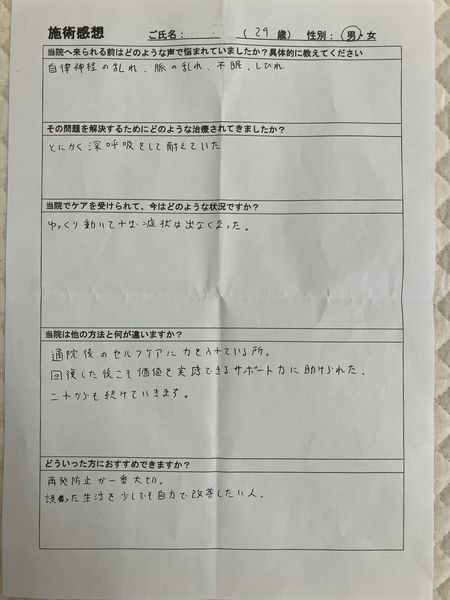 施術感想 ご氏名： （ 29 歳） 性別： 男・女
当院へ来られる前はどのような声で悩まれていましたか？具体的に教えてください
自律神経の乱れ、脈の乱れ、不眠、しびれ
その問題を解決するためにどのような治療されてきましたか？
とにかく深呼吸をして耐えていた
当院でケアを受けられて、今はどのような状況ですか？
ゆっくり動いて 症状は出なくなった。
当院は他の方法と何が違いますか？
通院後のセルフケアに力を入れている所。
回復した後こそ価値を実感できるサポート力に助けられた。
これからも続けていきます。
どういった方におすすめできますか？
再発防止が一番大切。
誤った生活を少しでも自力で改善したい人。